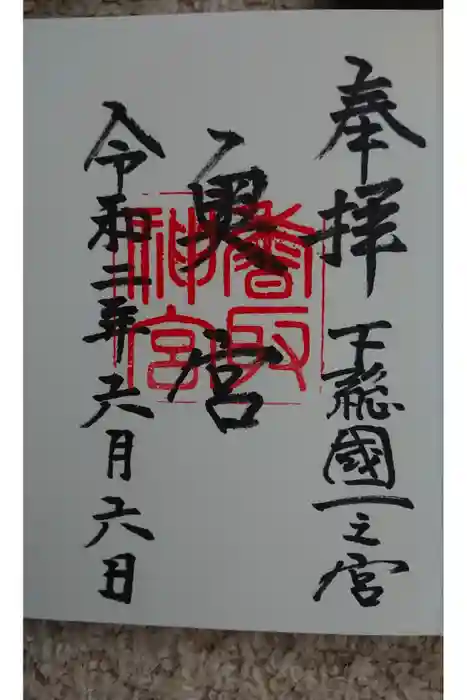 奉拝 下総國一之宮
奥宮
香取神宮
令和二年六月六日